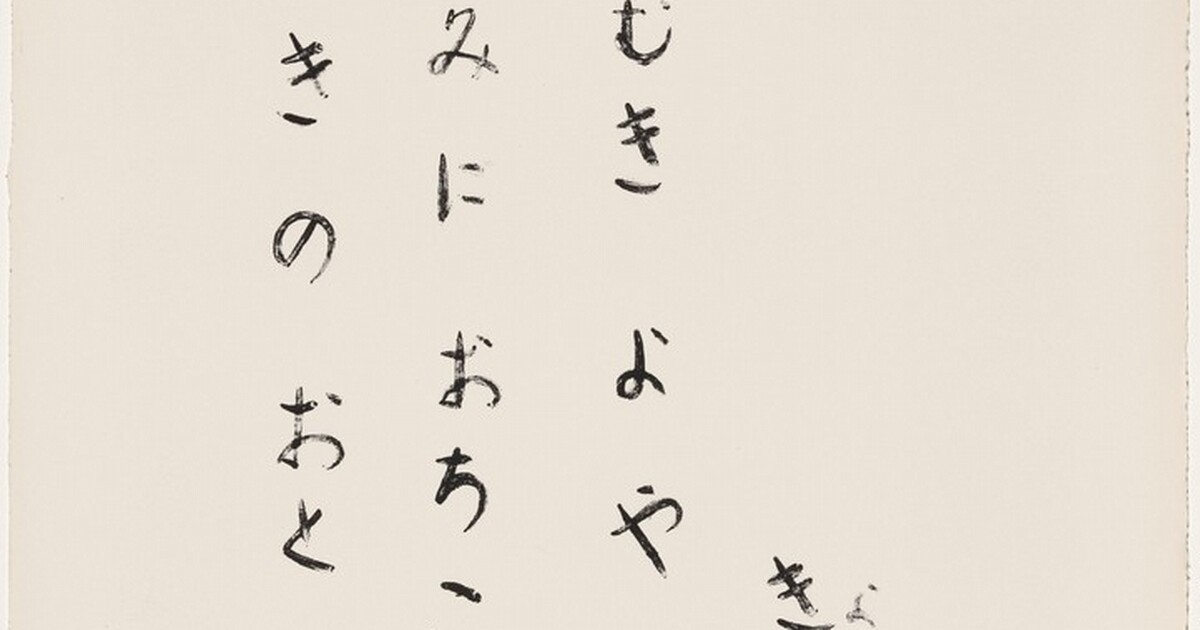 よ
き
むき よや
みに おち
きの おと